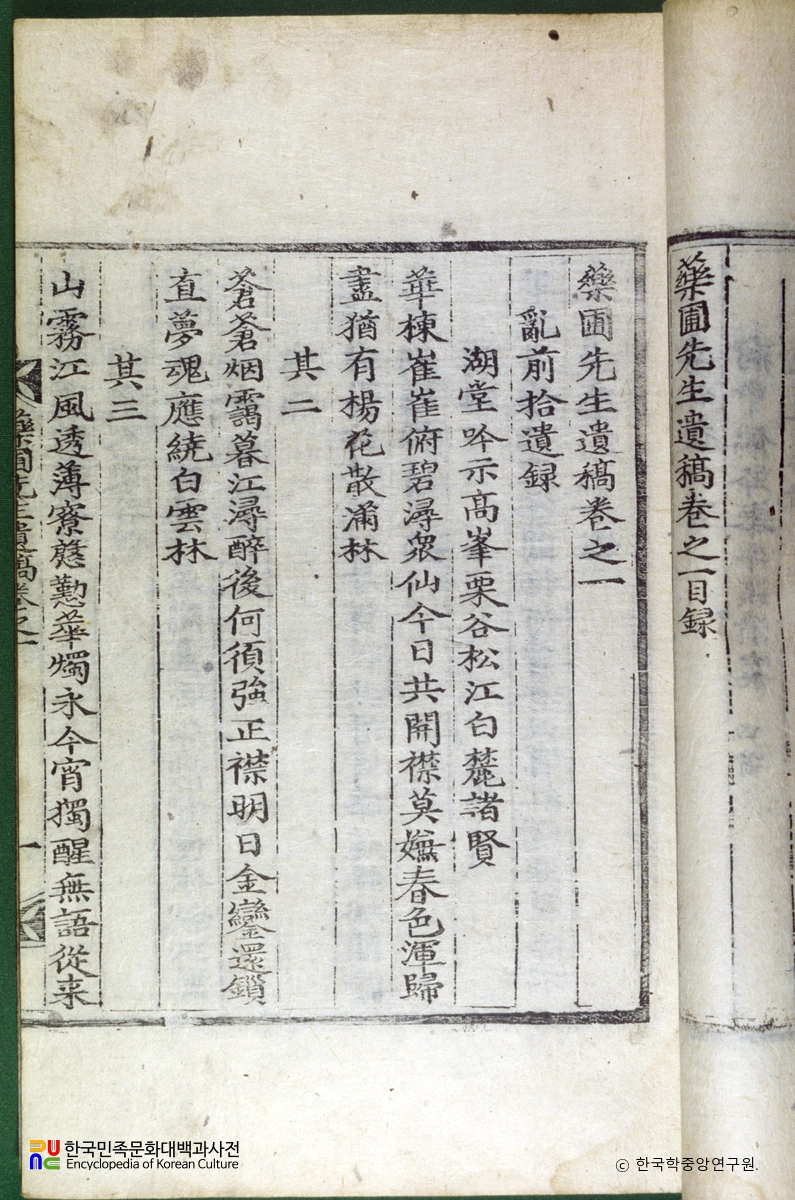 藥圃先生遺稿卷之一目録
藥圃先生遺稿卷之一
亂前拾遺録
湖堂吟示高峯栗谷松江白麓諸賢
華棟崔崔俯碧潯衆仙今日共開襟莫嫌春色渾歸
盡猶有楊花散滿林
其二
蒼蒼烟靄暮江潯醉後何須強正襟明日金鑾還鎖
直夢魂應繞白雲林
其三
山霧江風透薄寮慇懃華燭永今宵獨醒無語從来
藥圃先生遺稿卷之一
一
한국민족문화대백과사전
Encyclopedia of Korean Culture
© 한국학중앙연구원.